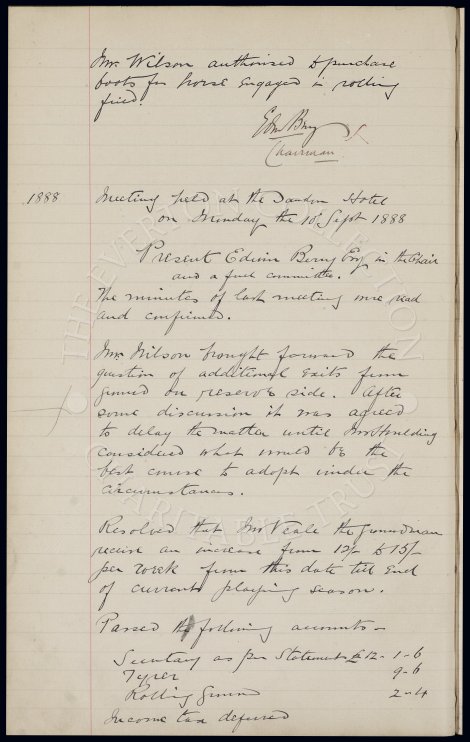 Mr. Wilson authorised to purchase
boots for horse engaged in rolling
field.
Edw Berry
Chairman.
1888 Meeting held at the Sandon Hotel
on Monday the 10th Sept 1888
Present Edwin Berry Esq in the Chair
and a full committee.
The minutes of last meeting were read
and confirmed.
Mr. Wilson brought forward the
question of additional exits from
ground on reserve side. After
some discussion it was agreed
to delay the matter until Mr Houlding
considered what would be the
best course to adopt under the
circumstances.
Resolved that Mr Veale the groundman
receive an increase from 12/- to 15/-
per week from this date till end
of current playing season.
Passed the following accounts -
Secretary as per Statement £12-1-6
Tyrer 9-6
Rolling Ground 2-4
Income tax deferred
THE EVERTON COLLECTION
CHARITABLE TRUST